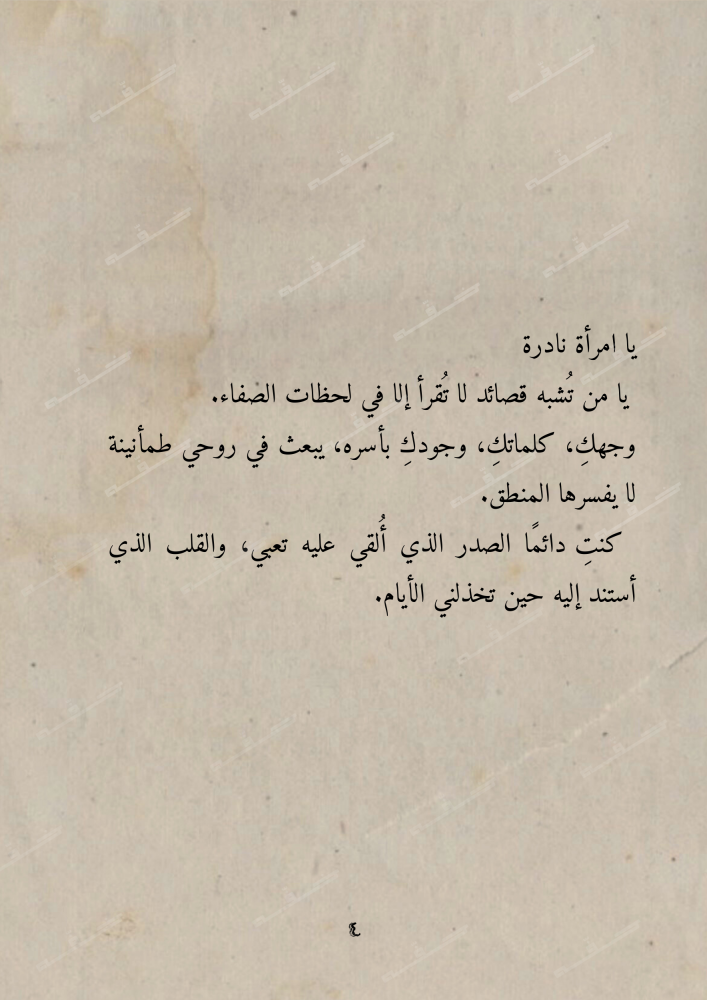 يا امرأة نادرة
يا من تُشبه قصائد لا تُقرأ إلا في لحظات الصفاء.
وجهكِ، كلماتكِ، وجودكِ بأسره، يبعث في روحي طمأنينة
لا يفسرها المنطق.
كنتِ دائمًا الصدر الذي أُلقي عليه تعبي، والقلب الذي
أستند إليه حين تخذلني الأيام.
٤